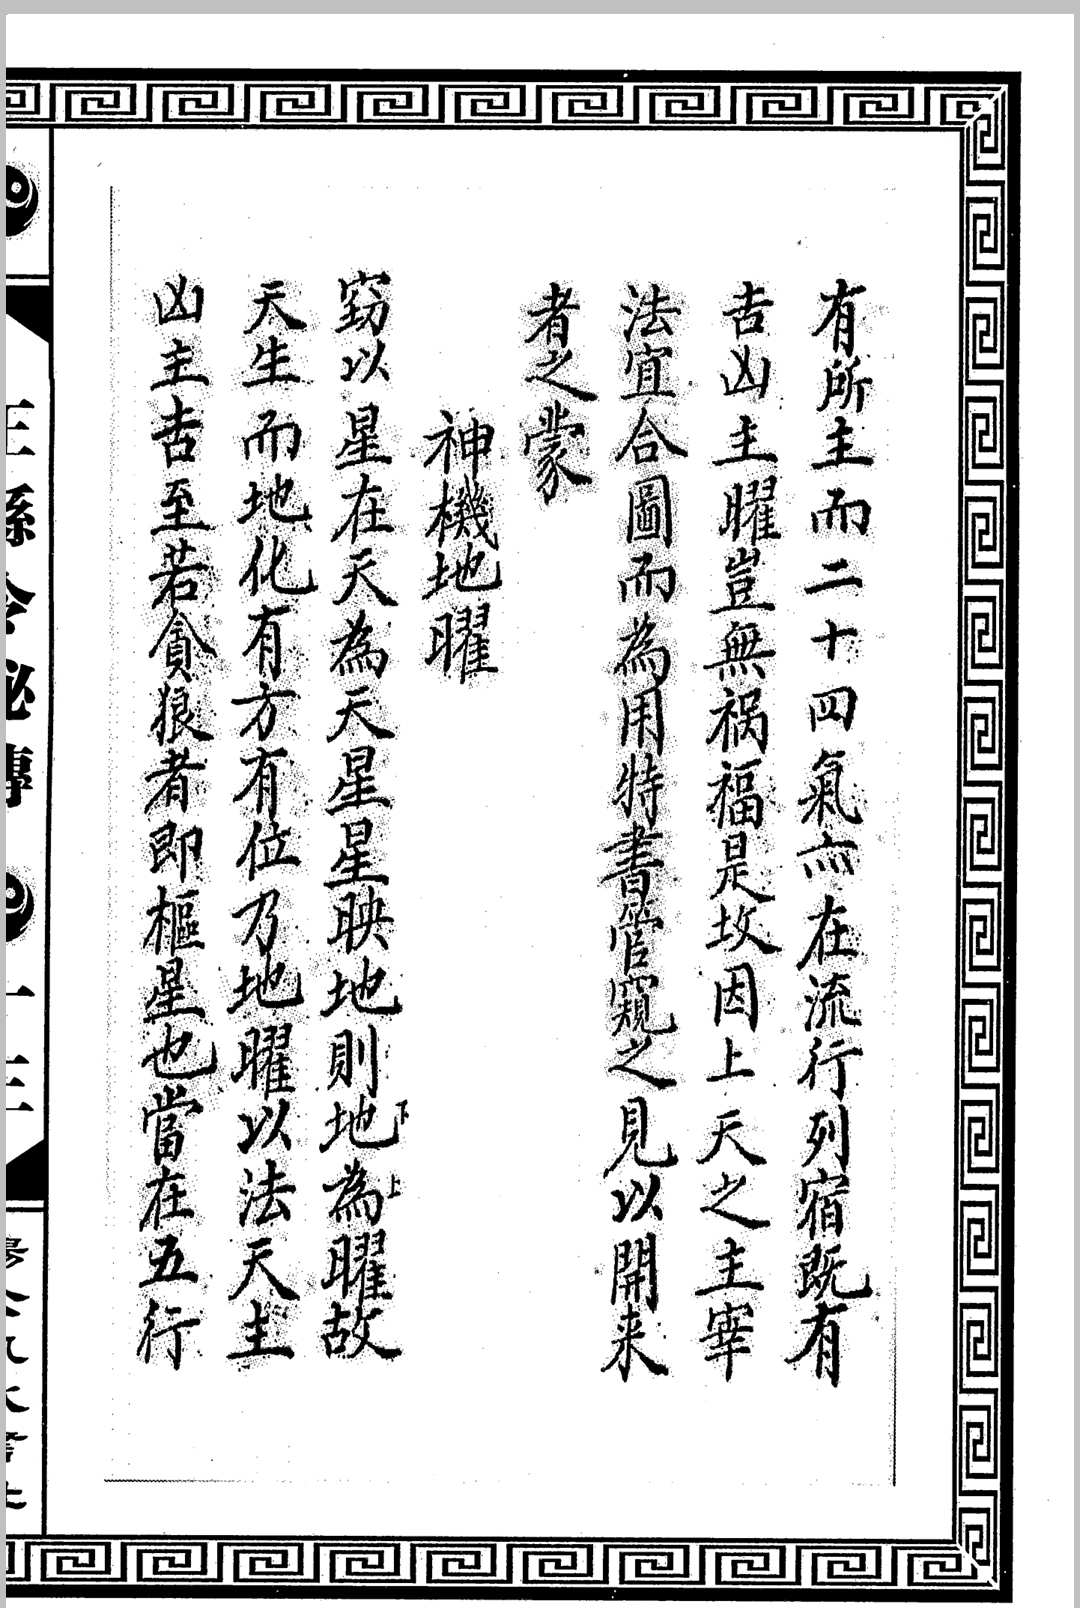 有所主而二十四氣亦在流行列宿既有
吉凶主曜豈無禍福是故因上天之主宰
法宜合圖而為用特書管窺之見以開来
者之蒙
神機地曜
窃以星在天為天星星映地則地為曜故
下
上
天生而地化有方有位乃地曜以法天主
凶主吉至若貪狼者即樞星也當在五行